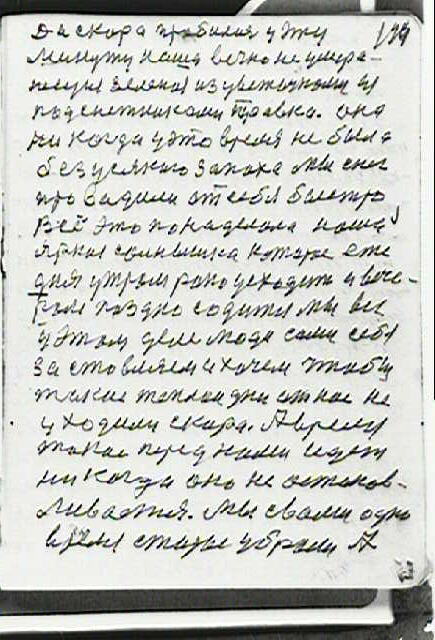 Да скора пробилия у эту 174
минуту наша вечно не умера-
ющия зеленая из цветочками и
подснежниками травка. она
ни когда у это время не была
без усякого запаха мы снег
про вадили от себя быстро
всё это понаделала наша
яркая солнышка которое еже
дня утром рано усходить и вече-
ром поздно содится мы все
у этом деле люди сами себя
за ставляем и хочем чтобы
такие теплаи дни от нас не
уходили скора. А время
такое перед нами идёть
ни когда оно не останов-
ливается. Мы свами одно
время старые убрали А